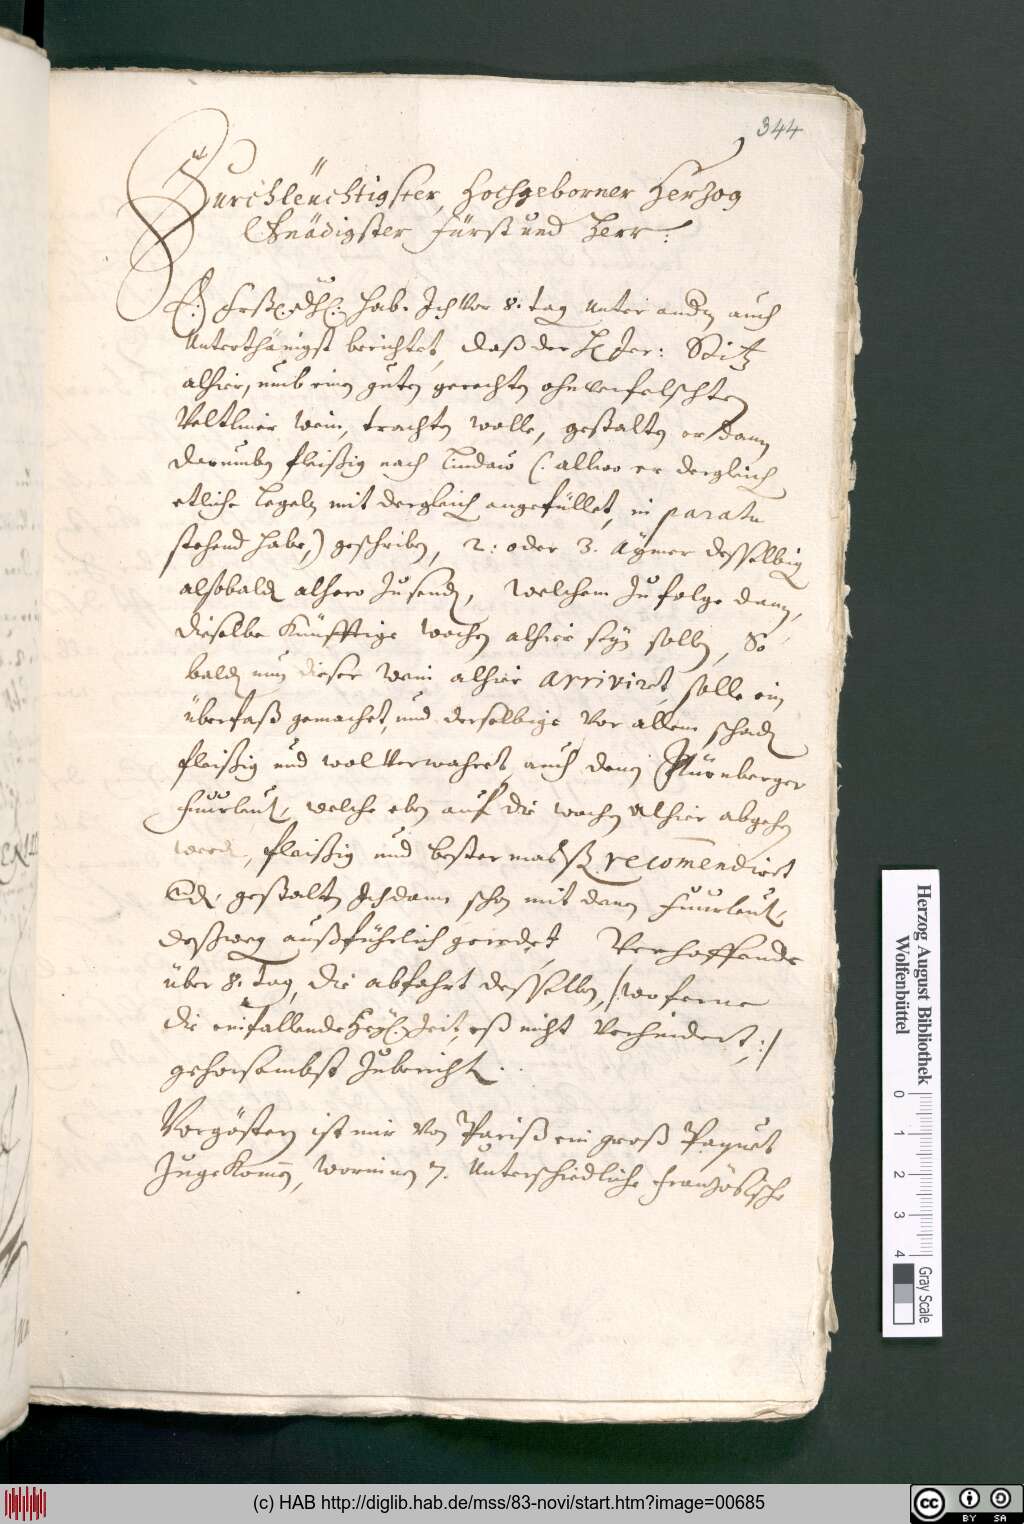 344
Durchleüchtigster, Hochgeborner Herzog
Gnädigster Fürst und Herr:
E: Frstl: Dhl: hab. Ich vor 8. tag unter andern auch
Unterthänigst berichtet, daß der H Jer: Sitz
alhier, umb einen guten gerechten ohnverfelschten
Veltliner wein, trachten wolle, gestalten er dann
darumben fleißig nach Lindaw (: allwo er dergleich
etliche Legeln mit dergleich angefüllet, in paratu
stehend habe,) geschriben, 2: oder 3. Aymer desselbig
alsobald alhero zusend, welchem zufolge dann,
dieselbe künfftige wochen alhier seyn sollen, So
bald nun dieser wein alhier arriviret, solle ein
überfaß gemachet, und derselbige vor allem schad
fleißig und wol verwahret, auch denen Nürnberger
fuhrleut, welche eben auf die wochen alhier abgehen
werd, fleißig und bester massß recomendiret
gestalten Ich dann schon mit denen fuhrleut,
deßweg außführlich geredet, Verhoffende
über 8. tag, die abfahrt desselben, /: wo ferne
die einfallende Heyl: Zeit, eß nicht verhindert, :/
gehorsambst zubericht.
Vorgestern ist mir von Pariß ein groß Paquet
zugekommen, worinnen 7. Unterschiedliche französische
Herzog August Bibliothek
Wolfenbüttel
0 1 2 3 4
Gray Scale
(c) HAB http://diglib.hab.de/mss/83-novi/start.htm?image=00685
cc BY SA